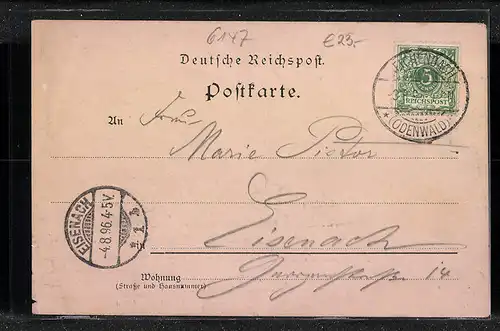 6147 €25.-
Deutsche Reichspost.
Postkarte.
5
REICHSPOST
(ODENWALD)
An Frau
Marie Pistor
EISENACH
-4.8.96.4-5V.
* 1 *
in Eisenach
14
Wohnung
(Straße und Hausnummer)